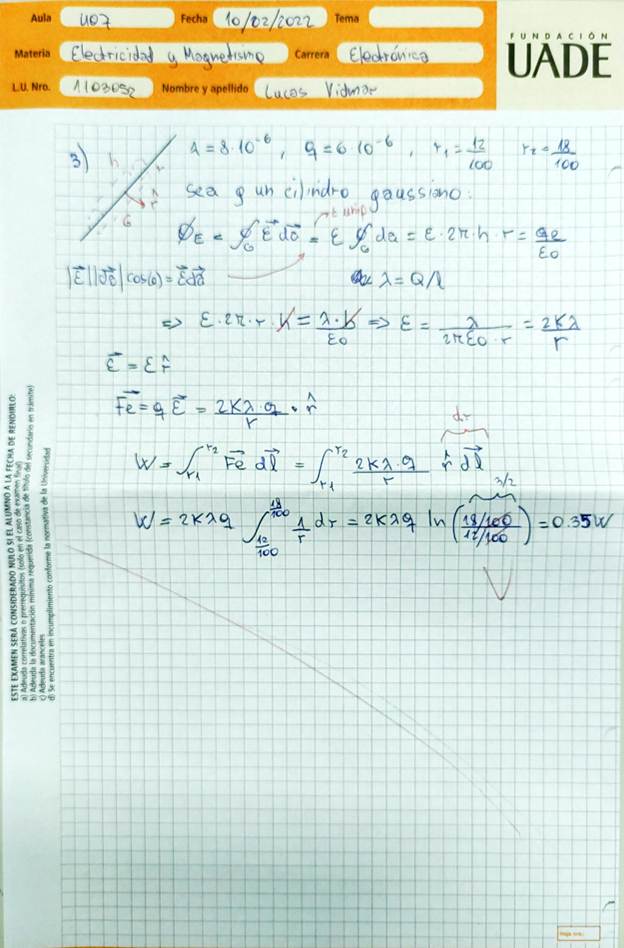 Aula U07 Fecha 10/02/2022 Tema
FUNDACIÓN
UADE
Materia Electricidad y Magnetismo Carrera Electrónica
L.U. Nro. 1103052 Nombre y apellido Lucas Vidmar
3) λ = 8·10^-6, q = 6·10^-6, r₁ = 12/100 r₂ = 18/100
h r r̂ G
sea g un cilindro gaussiano:
Φ_E = ∮_G E⃗ da⃗ = E ∮_G da = E·2π·h·r = qe/ε0
|E⃗||da⃗| cos(0) = E⃗ da⃗ λ = Q/l
=> E·2π·r·h = λ·h/ε0 => E = λ/2πε0·r = 2Kλ/r
E⃗ = E r̂
F⃗e = q E⃗ = 2Kλ·q/r · r̂
dr
W = ∫_r1^r2 F⃗e dl⃗ = ∫_r1^r2 2Kλ·q/r r̂ dl⃗
3/2
W = 2Kλq ∫_12/100^18/100 1/r dr = 2Kλq ln(18/100 / 12/100) = 0.35W
ESTE EXAMEN SERÁ CONSIDERADO NULO SI EL ALUMNO A LA FECHA DE RENDIRLO:
a) Adeuda correlativas o prerrequisitos (solo en el caso de examen final)
b) Adeuda la documentación mínima requerida (constancia de título del secundario en trámite)
c) Adeuda aranceles
d) Se encuentra en incumplimiento conforme la normativa de la Universidad
Hoja nro.: